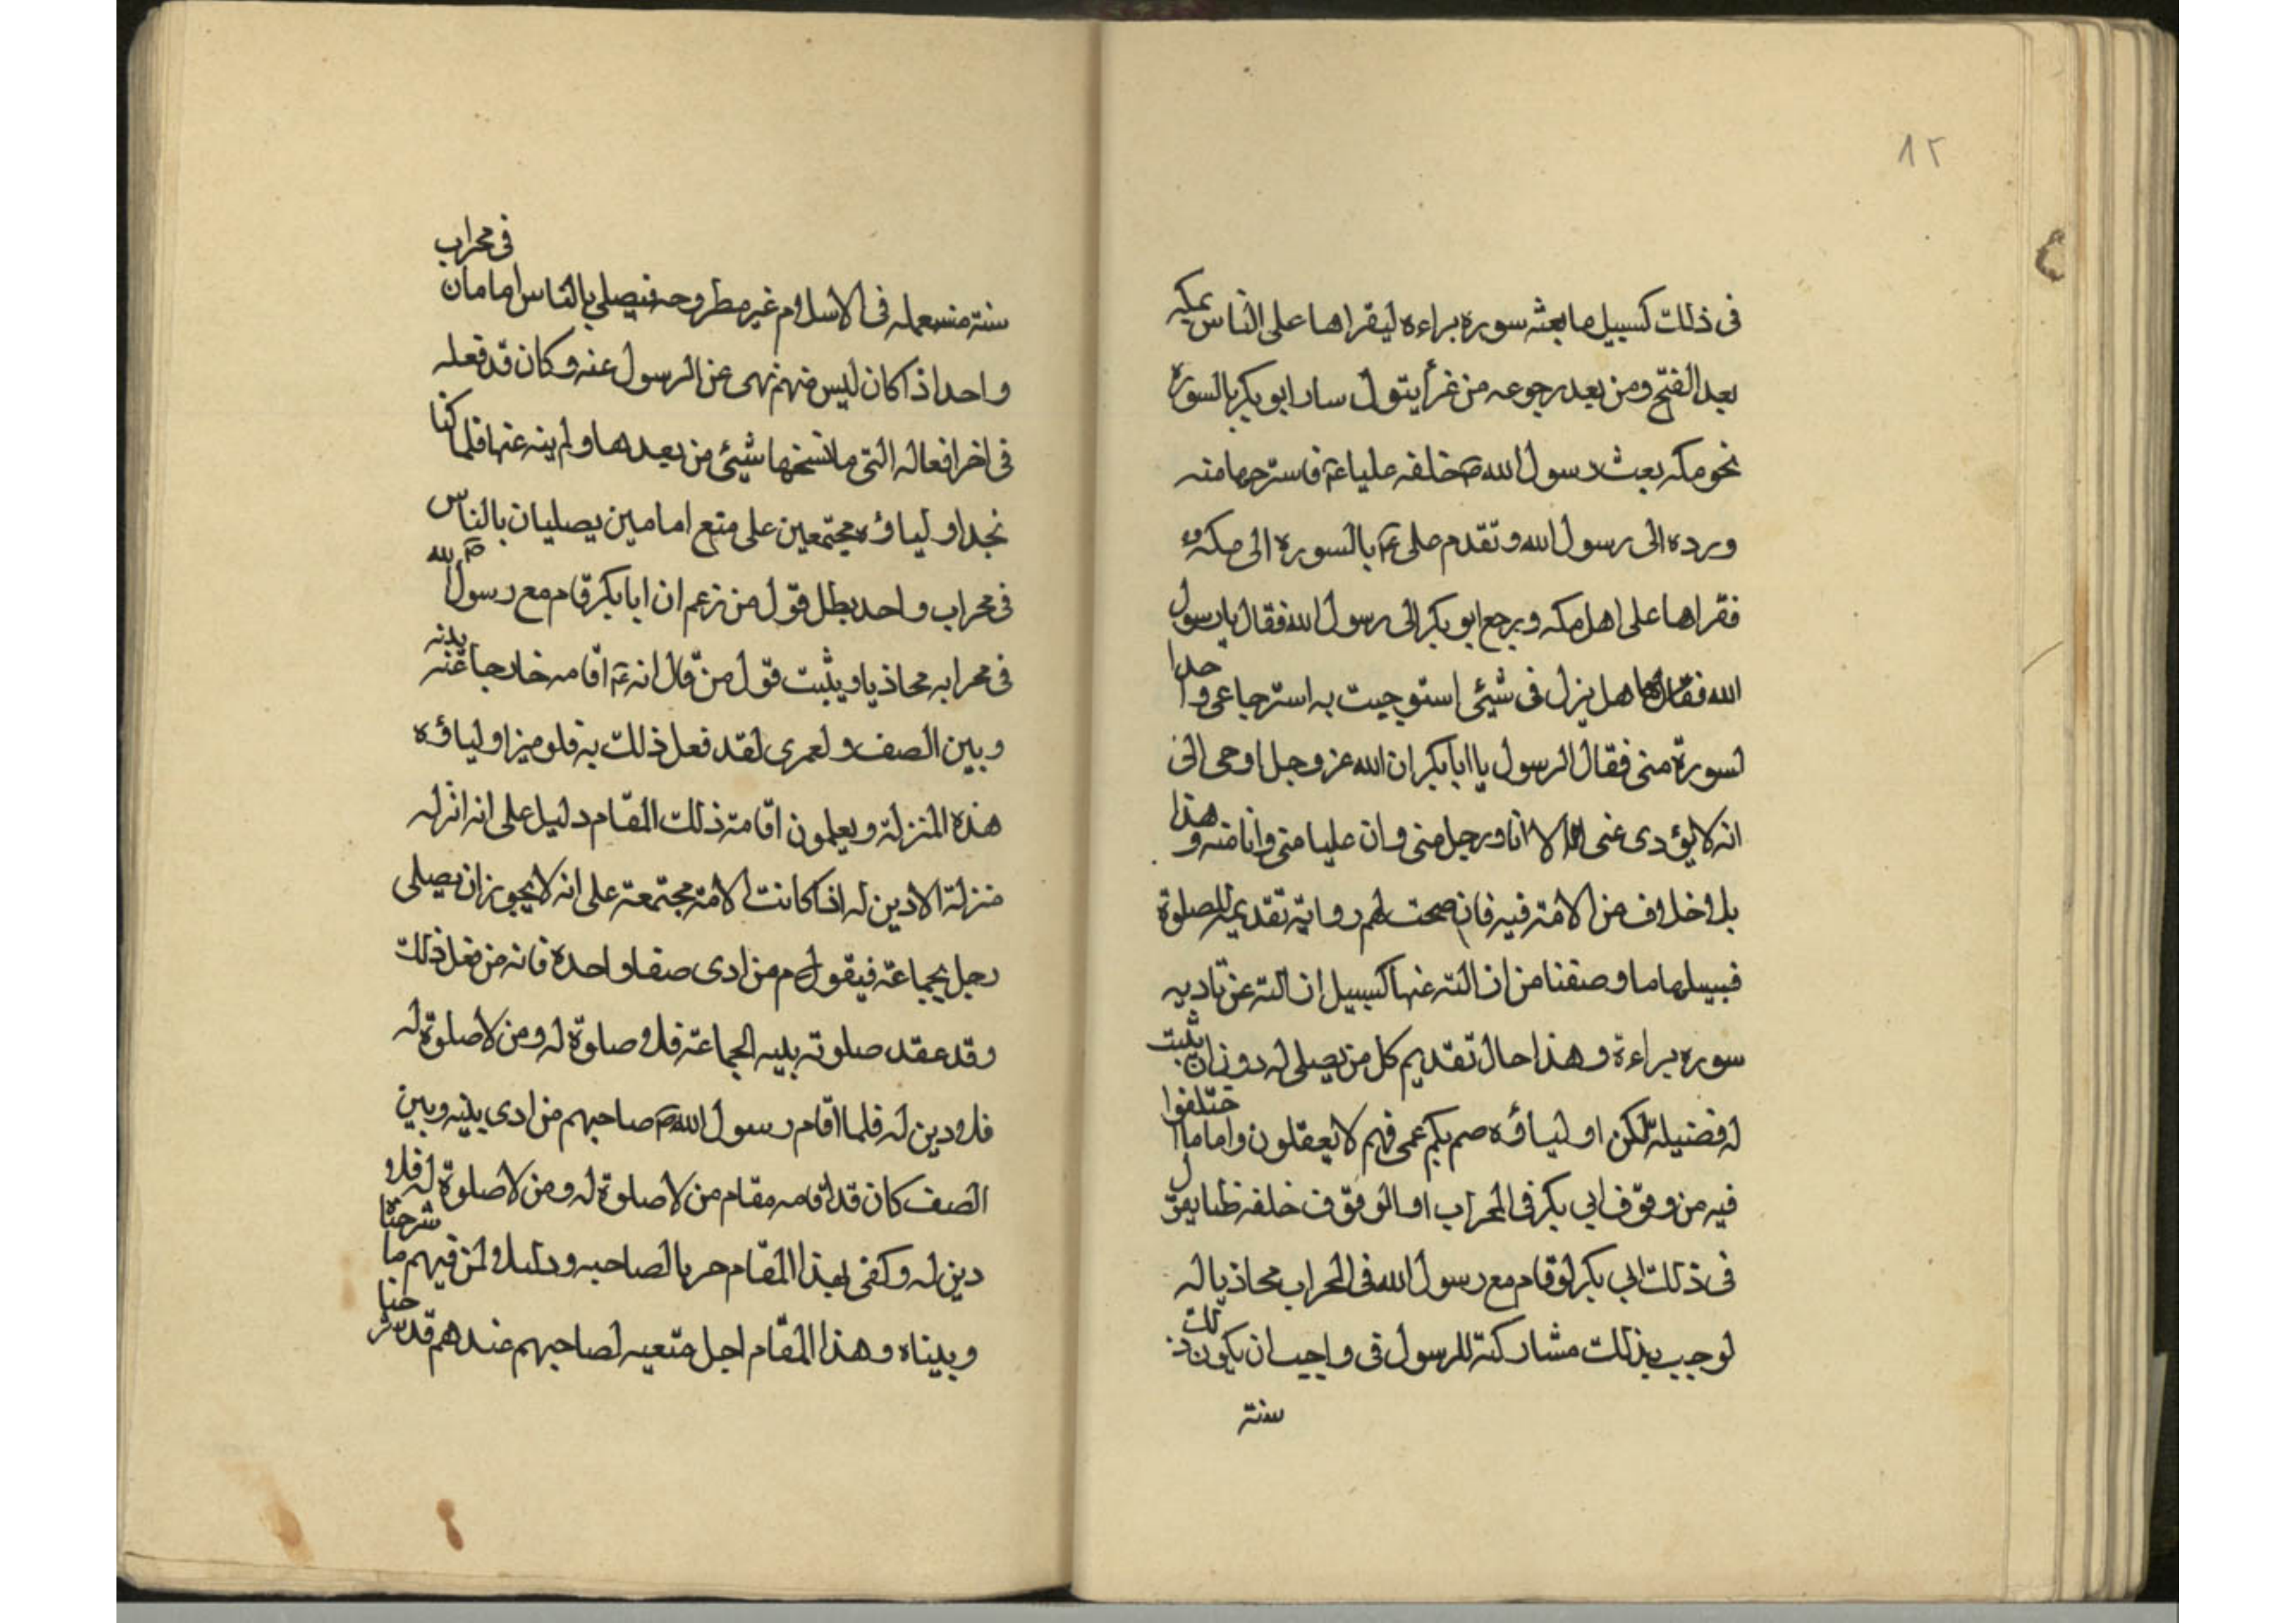 ٨٢
فى ذلك كسبيل ما بعثه سوره براءه ليقراها على الناس بمكه
بعد الفتح ومن بعد رجوعه من غزأ يتول سار ابو بكر بالسورة
نحو مكه بعث رسول الله صم خلفه عليا عم فاسترجها منه
ورده الى رسول الله وتقدم على عم بالسوره الى مكه
فقراها على اهل مكه ورجع ابو بكر الى رسول الله فقال يا رسول
الله هل نزل فى شيئ استوجبت به استرجاعى واحدا
لسورة منى فقال الرسول يا ابا بكر ان الله عز وجل اوحى الى
انه لا يؤدى عنى الا انا ورجل منى وان عليا منى وانا منه وهذا
بلا خلاف من الامة فيه فان صحت لهم رواية تقديمه للصلوة
فبيسلها ما وصفنا من ازالته عنها كسبيل ازالته عن تاديه
سوره براءة وهذا حال تقديم كل من يصلى له دون ان يثبت
له فضيلة لكن اولياؤه صم بكم عمى فهم لا يعقلون واما ما اختلفوا
فيه من وقوف ابى بكر فى المحراب او الوقوف خلفه
فى ذلك ابى بكر لو قام مع رسول الله فى المحراب محاذيا له
لوجب بذلك مشاركته للرسول فى واجب ان يكون ذلك
سنة
سنة مستعمله فى الاسلام غير مطروحه فيصلى بالناس امامان فى محراب
واحد اذا كان ليس منهم نهى عن الرسول عنه وكان قد فعله
فى اخر افعاله التى ما نسخها شيئ من بعدها ولم ينه عنها فلما كنا
نجد اولياؤه مجتمعين على منع امامين يصليان بالناس
فى محراب واحد بطل قول من زعم ان ابا بكر قام مع رسول الله صم
فى محرابه محاذيا ويثبت قول من قال انه عم اقامه خارجا عنه بينه
وبين الصف ولعمرى لقد فعل ذلك به فلو ميز اولياؤه
هذه المنزلة ويعلمون اقامة ذلك المقام دليل على انه انزله
منزلة الادين له اذا كانت الامة مجتمعة على انه لا يجوز ان يصلى
رجل بجماعة فيقول من ادى صفا واحدة فانه من فعل ذلك
وقد عقد صلوته بليه الجماعة فلا صلوة له ومن لا صلوة له
فلا دين له فلما اقام رسول الله صم صاحبهم من ادى بينه وبين
الصف كان قد اقامه مقام من لا صلوة له ومن لا صلوة له فلا
دين له وكفى بهذا المقام حربا لصاحبه ودليلا لمن فيهم ما شرحنا
وبيناه وهذا المقام اجل صاحبهم عندهم قد شرحنا